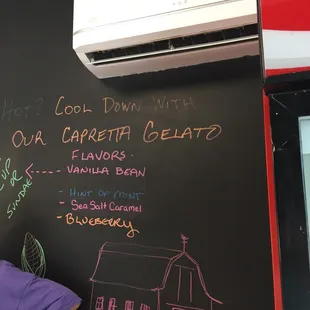 Hot? Cool Down With
Our Capretta Gelato
Flavors.
- Vanilla Bean
- Hint of Mint
- Sea Salt Caramel
- Blueberry
or
Sundae